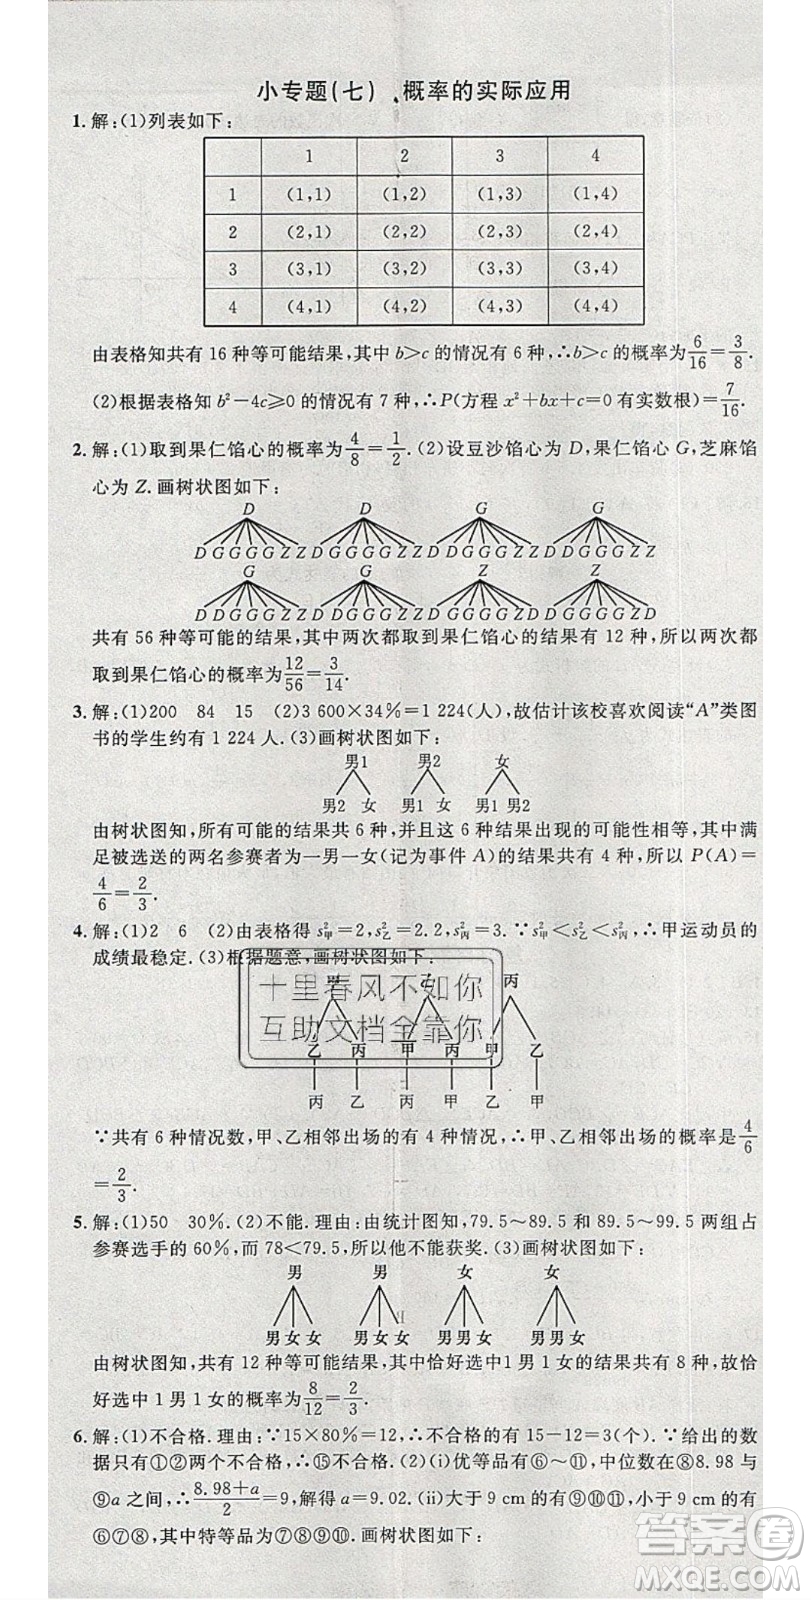 小专题(七) 概率的实际应用
1.解:(1)列表如下:
1 2 3 4
1 (1,1) (1,2) (1,3) (1,4)
2 (2,1) (2,2) (2,3) (2,4)
3 (3,1) (3,2) (3,3) (3,4)
4 (4,1) (4,2) (4,3) (4,4)
由表格知共有 16 种等可能结果,其中 b>c 的情况有 6 种,∴b>c 的概率为6/16=3/8.
(2)根据表格知 b²-4c⩾0 的情况有 7 种,∴P(方程 x²+bx+c=0 有实数根)=7/16.
2.解:(1)取到果仁馅心的概率为4/8=1/2.(2)设豆沙馅心为 D,果仁馅心 G,芝麻馅
心为 Z.画树状图如下:
D D G G
D G G G G Z Z D G G G G Z Z D D G G G Z Z D D G G G Z Z
G G Z Z
D D G G G Z Z D D G G G Z Z D D G G G G Z D D G G G G Z
共有 56 种等可能的结果,其中两次都取到果仁馅心的结果有 12 种,所以两次都
取到果仁馅心的概率为12/56=3/14.
3.解:(1)200 84 15 (2)3 600×34%=1 224(人),故估计该校喜欢阅读“A”类图
书的学生约有 1 224 人.(3)画树状图如下:
男1 男2 女
男2 女 男1 女 男1 男2
由树状图知,所有可能的结果共 6 种,并且这 6 种结果出现的可能性相等,其中满
足被选送的两名参赛者为一男一女(记为事件 A)的结果共有 4 种,所以 P(A)=
4/6=2/3.
4.解:(1)2 6 (2)由表格得 s²甲=2,s²乙=2.2,s²丙=3.∵s²甲<s²乙<s²丙,∴甲运动员的
成绩最稳定.(3)根据题意,画树状图如下:
甲 乙 丙
乙 丙 甲 丙 甲 乙
丙 乙 丙 甲 乙 甲
十里春风不如你
互助文档全靠你.
∵共有 6 种情况数,甲、乙相邻出场的有 4 种情况,∴甲、乙相邻出场的概率是4/6
=2/3.
5.解:(1)50 30%.(2)不能.理由:由统计图知,79.5~89.5 和 89.5~99.5 两组占
参赛选手的 60%,而 78<79.5,所以他不能获奖.(3)画树状图如下:
男 男 女 女
男 女 女 男 女 女 男 男 女 男 男 女
由树状图知,共有 12 种等可能结果,其中恰好选中1 男 1 女的结果共有 8 种,故恰
好选中 1 男 1 女的概率为8/12=2/3.
6.解:(1)不合格.理由:∵15×80%=12,∴不合格的有 15-12=3(个).∵给出的数
据只有①②两个不合格,∴⑮不合格.(2)(i)优等品有⑥~⑪,中位数在⑧8.98 与
⑨a 之间,∴(8.98+a)/2=9,解得 a=9.02.(ii)大于 9 cm 的有⑨⑩⑪,小于 9 cm 的有
⑥⑦⑧,其中特等品为⑦⑧⑨⑩.画树状图如下:
答案圈
MXQE.COM